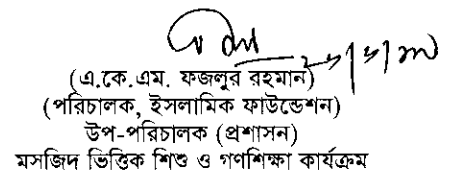 (এ.কে.এম. ফজলুর রহমান)
(পরিচালক, ইসলামিক ফাউন্ডেশন)
উপ-পরিচালক (প্রশাসন)
মসজিদ ভিত্তিক শিশু ও গণশিক্ষা কার্যক্রম